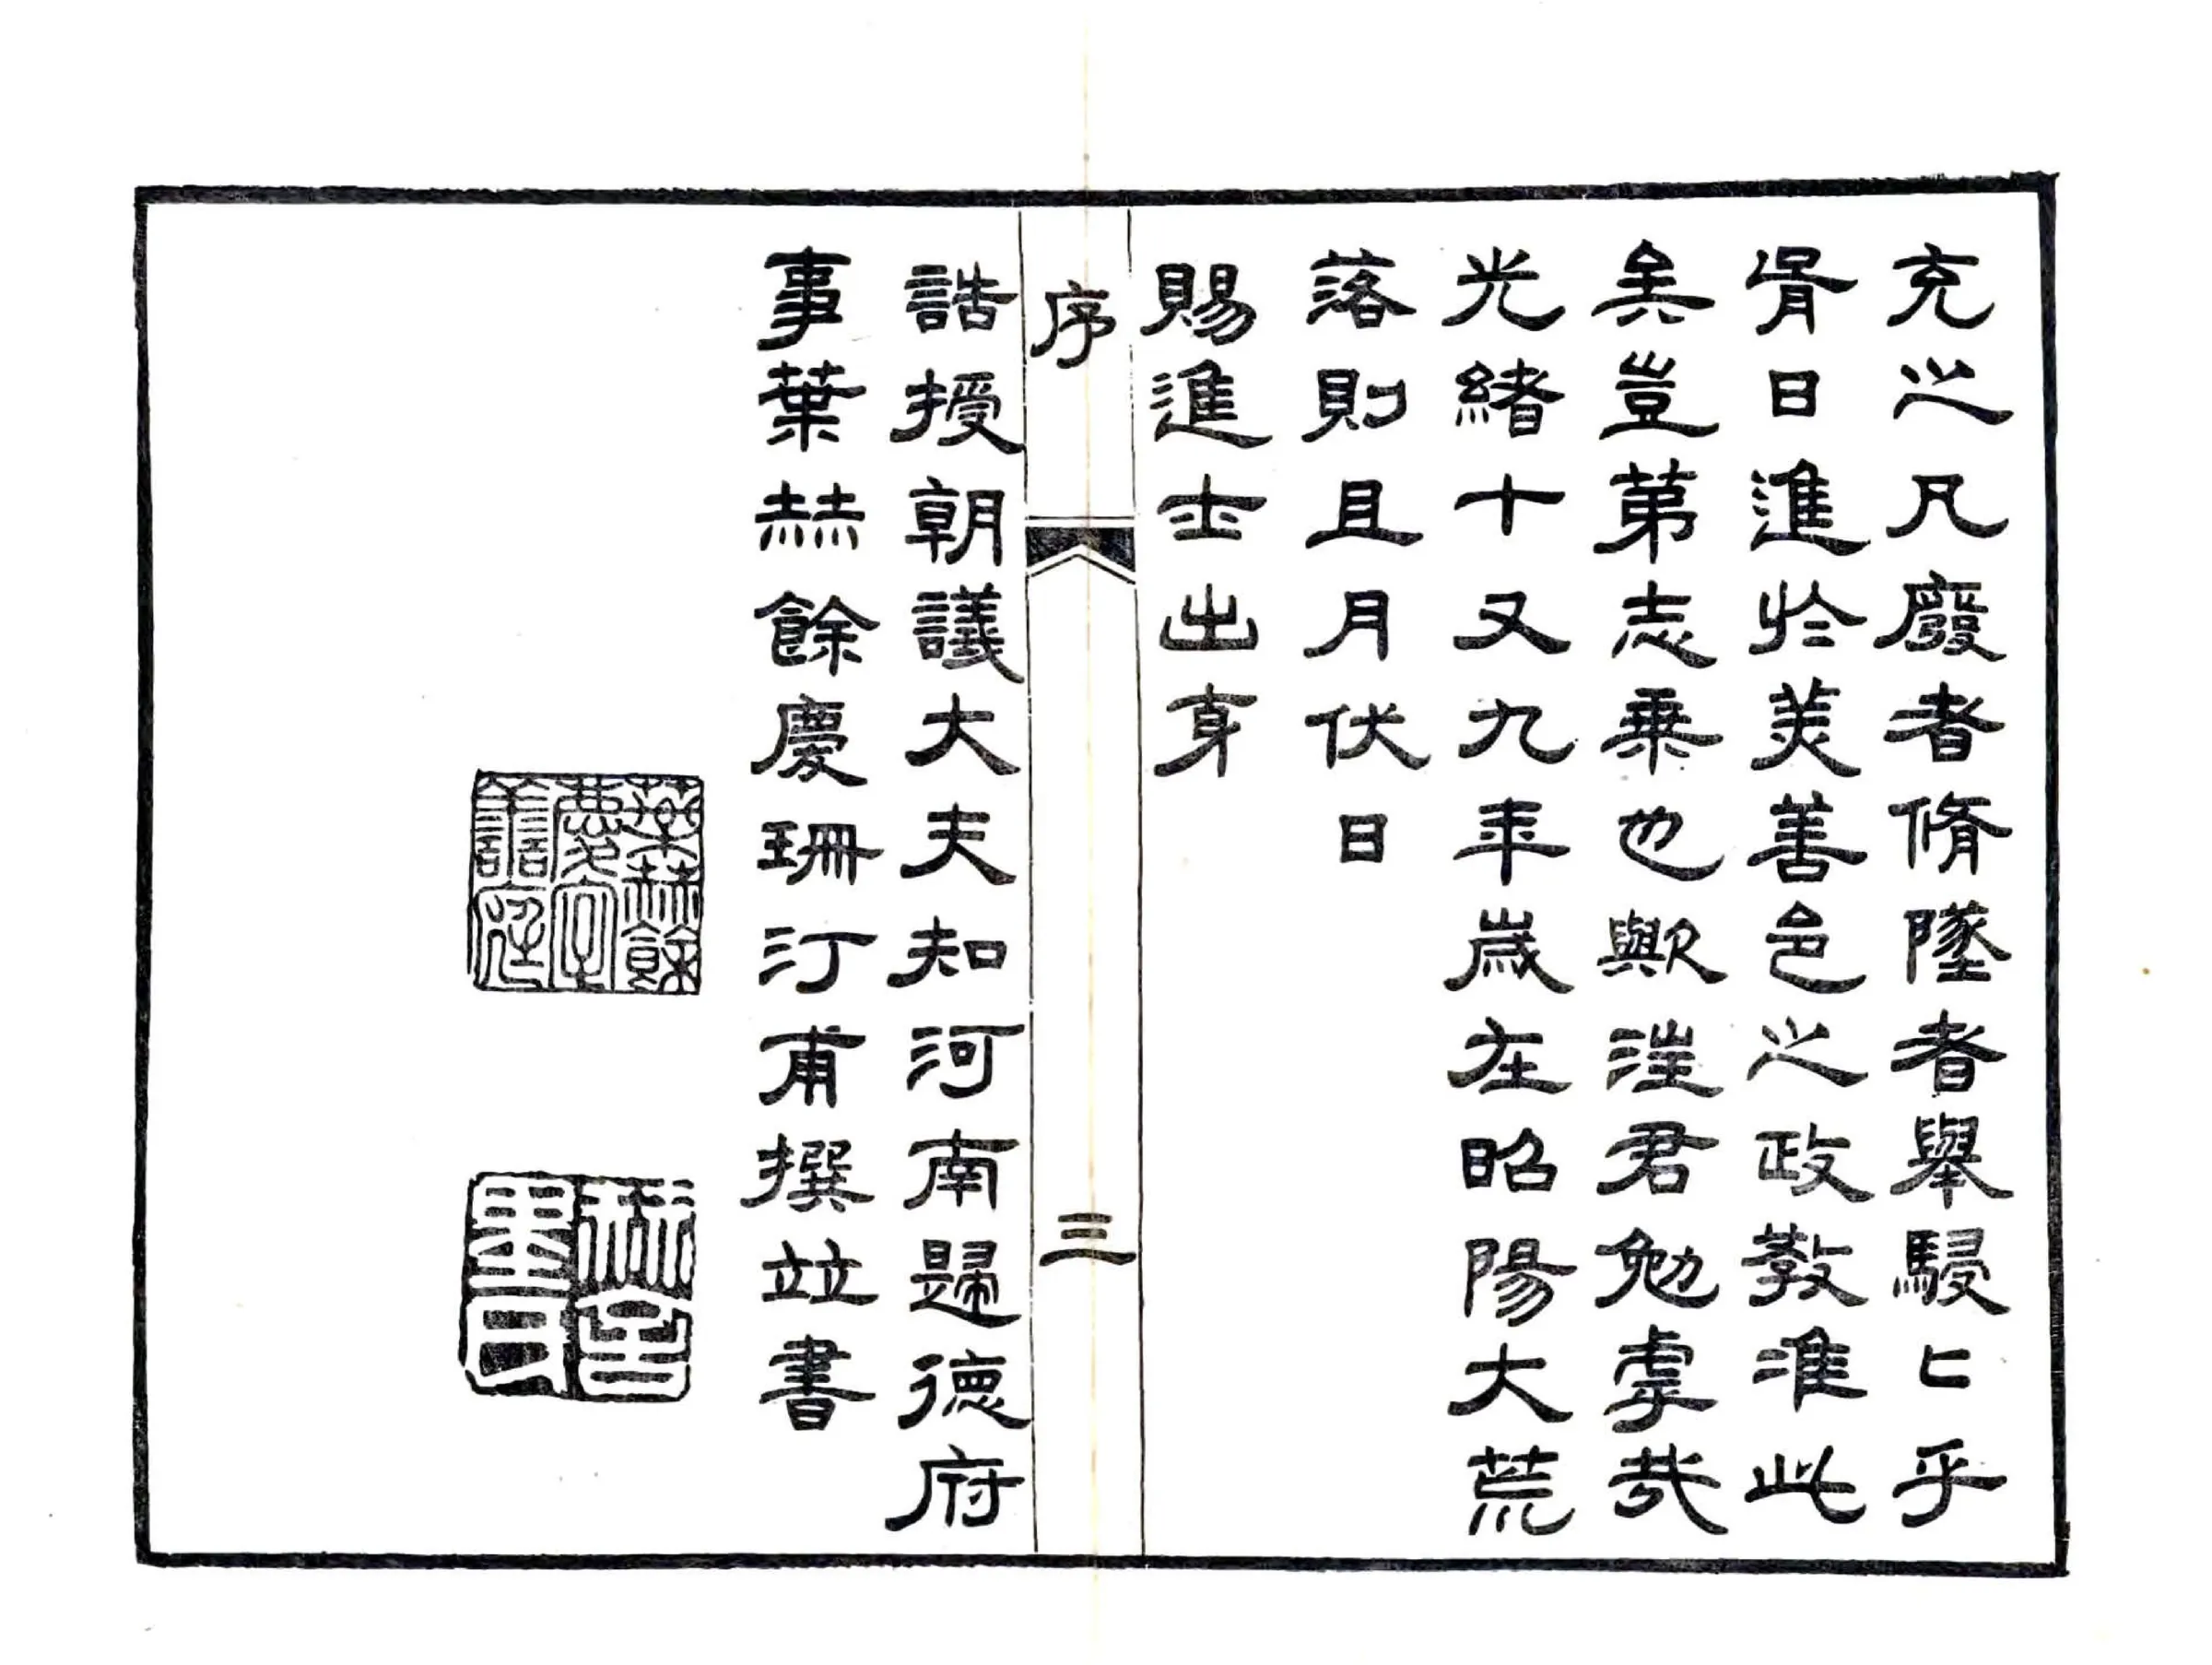 充之凡廢者脩墜者舉駸匕乎
胥日進於美善邑之政教淮此
矣豈第志乘也歟君勉虖哉
光緒十又九年歲在昭陽大荒
落則且月伏日
賜進士出身
序
三
誥授朝議大夫知河南歸德府
事葉赫餘慶珊汀甫撰並書
葉赫餘
慶字
譱庭